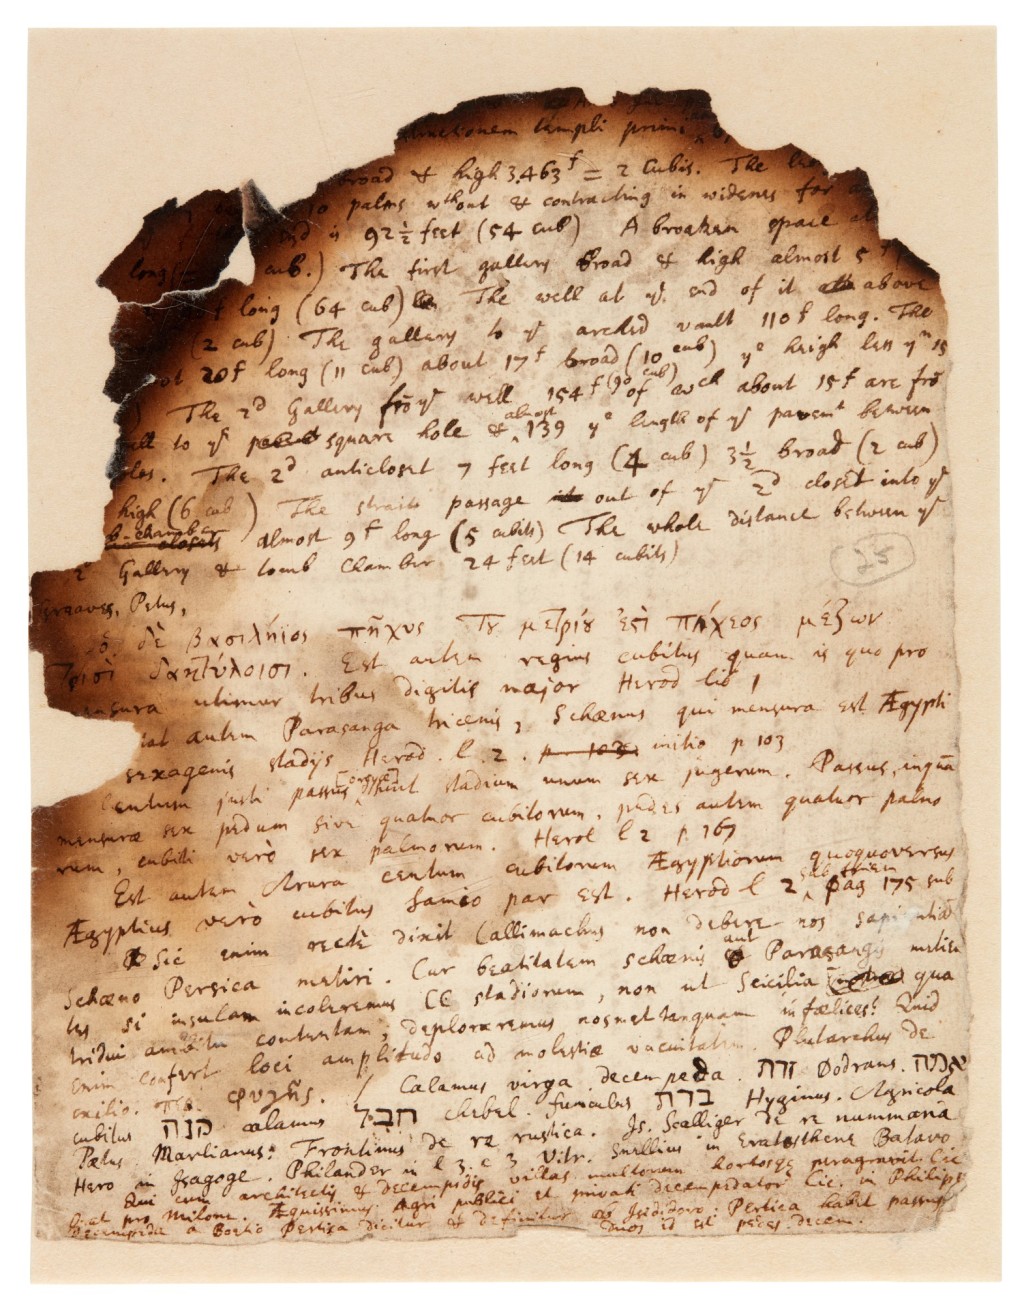 templi primi
broad & high 3.463f = 2 Cubis. The
10 palms wthout & contracting in widenes for
end is 92½ feet (54 cub) A broaken space
long cub.) The first gallery broad & high almost 5
long (64 cub) The well at ye. end of it above
(2 cub) The gallery to ye arched vault 110f long. The
20f long (11 cub) about 17f broad (10 cub) ye heigh less yn 15
The 2d Gallery frō ye well 154f (90 cub) of wch about 15f are frō
to ye square hole & almost 139 ye length of ye pavemt between
The 2d anticloset 7 feet long (4 cub) 3½ broad (2 cub)
high (6 cub) The strait passage out of ye 2d closet into ye
b-chamber closets almost 9f long (5 cubits) The whole distance between ye
2 Gallery & tomb Chamber 24 feet (14 cubits)
25
Greaves, Petus,
ὁ. δὲ βασιλήϊος πῆχυς τȣ μετρίȣ ἐστὶ πήχεος μέζων
τρισὶ δακτύλοισι. Est autem regius cubitus quam is quo pro
mensura utimur tribus digitis major Herod lib 1
autem Parasanga tricenis, Schœnus qui mensura est Ægypti
sexagenis stadijs Herod. l. 2. p. 103. initio p 103
Centum justi passus orgyæ stadium unum sex jugerum. Passus, inquā
mensuræ sex pedum sive quatuor cubitorum, pedes autem quatuor palmo
rum, cubiti verò sex palmorum. Herod l 2 p. 167
Est autem Arura centum cubitorum Ægyptiorum quoquoversus
Ægyptius verò cubitus Samio par est. Herod l 2 sub finem pag 175 sub
Sic enim rectè dixit Callimachus non debere nos sapientiā
Schæno Persica metiri. Cur beatitatem schænis aut Parasangis metien
tes si insulam incoleremus CC stadiorum, non ut Scicilia qua
tridui ambitu contentam, deploraremus nosmet tanquam infœlices? Quid
enim confert loci amplitudo ad molestiæ vacuitatem. Plutarchus de
exilio. πε. φυγῆς. / Calamus virga decempeda. זרה Dodrans. אמה
cubitus קנה calamus חבל chebel. funculus ברה Hyginus. Agricola
Pætus Marlianus: Frontinus de re rustica. Js. Scalliger de re nummaria
Hero in Isagoge. Philander in l 3. c 3 Vitr. Snellius in Eratosthene Batavo
Qui cum architectis & decempedis villas multorum hortosque peragravit Cic
pro Milone. Æquissimus Agri publici et privati decempedator Cic. in Philipp
Decempeda a Boetio Pertica dicitur & definitur ab Isidoro. Pertica habet passus
duos id est pedes decem.